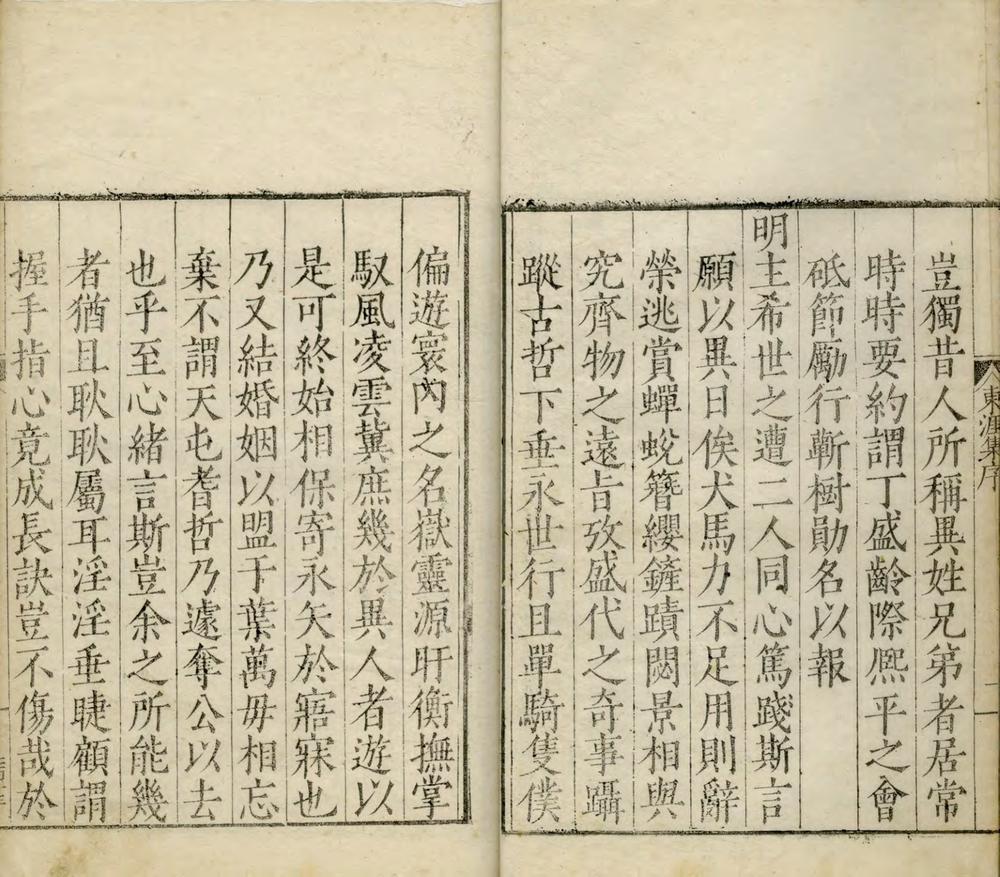 豈獨昔人所稱異姓兄弟者居常
時時要約謂丁盛齡際熈平之會
砥節勵行蘄樹勛名以報
明主希世之遭二人同心篤踐斯言
願以異日俟犬馬力不足用則辭
榮逃賞蟬蛻簪纓鏟蹟閟景相與
究齊物之遠旨攷盛代之奇事躡
蹤古哲下垂永世行且單騎隻僕
東
集序
二
偏遊寰內之名嶽靈源盱衡撫掌
馭風凌雲冀庶幾於異人者遊以
是可終始相保寄永矢於寤寐也
乃又結婚姻以盟于葉萬毋相忘
棄不謂天屯耆哲乃遽奪公以去
也乎至心緒言斯豈余之所能幾
者猶且耿耿屬耳淫淫垂睫顧謂
握手指心竟成長訣豈不傷哉於